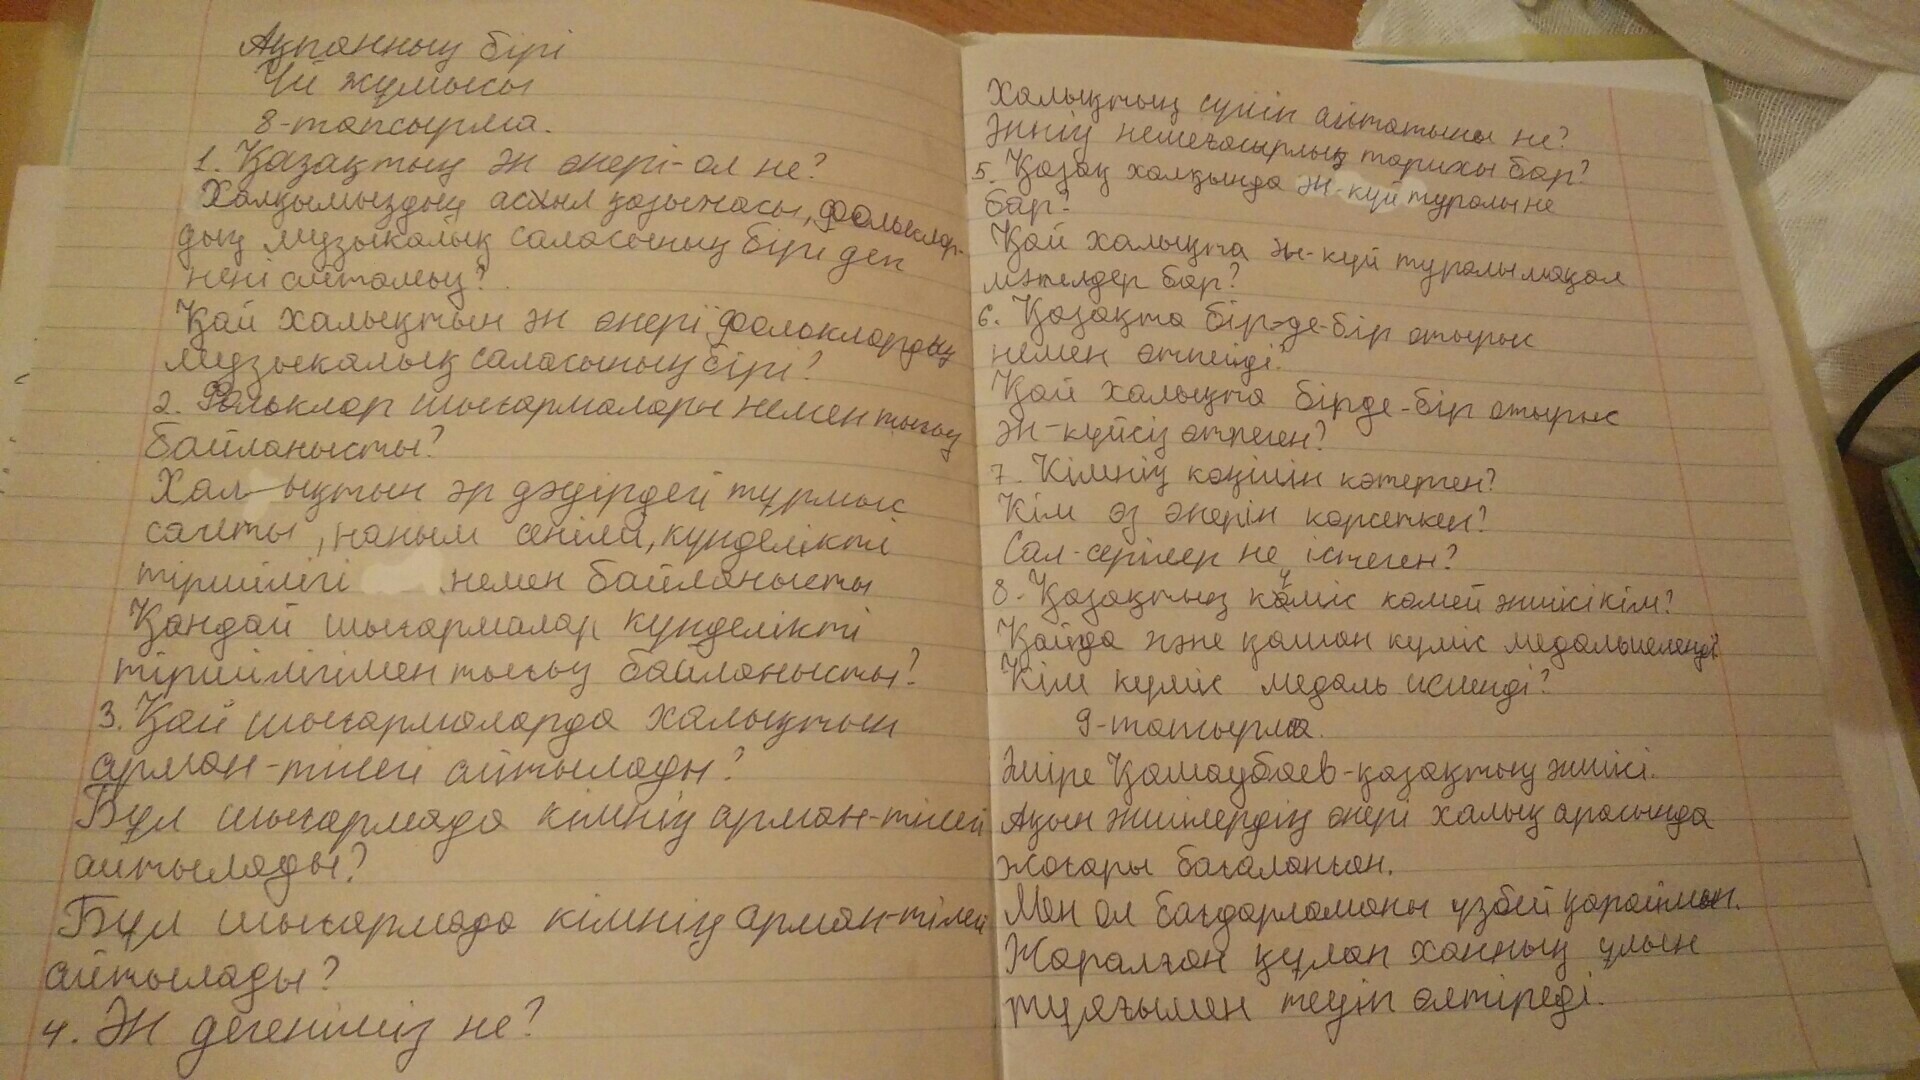 Ақпанның бірі
Үй жұмысы
8-тапсырма.
1. Қазақтың ән өнері-ол не?
Халқымыздың асыл қазынасы, фольклор-
дың музыкалық саласының бірі деп
нені айтамыз?
Қай халықтын ән өнері фольклордың
музыкалық саласының бірі?
2. Фольклор шығармалары немен тығыз
байланысты?
Хал-ықтын әр дәуірдегі тұрмыс
салты, наным сенімі, күнделікті
тіршілігі немен байланысты
Қандай шығармалар күнделікті
тіршілігімен тығыз байланысты?
3. Қай шығармаларда халықтың
арман-тілегі айтылады?
Бұл шығармада кімнің арман-тілегі
айтылады?
Бұл шығармада кімнің арман-тілегі
айтылады?
4. Ән дегеніміз не?
Халықтың сүйіп айтатыны не?
Әннің неше ғасырлық тарихы бар?
5. Қазақ халқында ән-күй туралы не
бар?
Қай халықта ән-күй туралы мақал
мәтелдер бар?
6. Қазақта бір-де-бір отырыс
немен өтпейді?
Қай халықта бірде-бір отырыс
ән-күйсіз өтпеген?
7. Кімнің көңілін көтерген?
Кім өз өнерін көрсеткен?
Сал-серілер не істеген?
8. Қазақтың күміс көмей әншісі кім?
Қайда және қашан күміс медаль иеленді
Кім күміс медаль иеленді?
9-тапсырма.
Әміре Қашаубаев-қазақтың әншісі.
Ақын әншілердің өнері халық арасында
жоғары бағаланған.
Мен ол бағдарламаны үзбей қараймын.
Жаралған құлан ханның ұлын
тұяғымен теуіп өлтіреді.